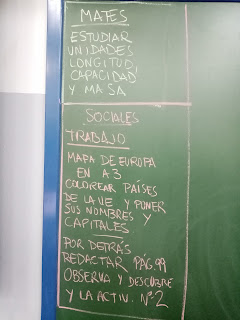 MATES
ESTUDIAR
UNIDADES
LONGITUD,
CAPACIDAD
Y MASA
SOCIALES
TRABAJO
MAPA DE EUROPA
EN A3
COLOREAR PAÍSES
DE LA UE Y PONER
SUS NOMBRES Y
CAPITALES
POR DETRÁS
REDACTAR PÁG. 99
OBSERVA Y DESCUBRE
Y LA ACTIV. Nº 2